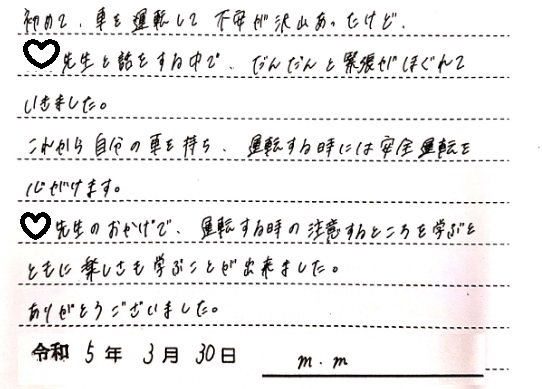 初めて、車を運転して不安が沢山あったけど、
♡先生と話をする中で、だんだんと緊張がほぐれて
いきました。
これから自分の車を持ち、運転する時には安全運転を
心がけます。
♡先生のおかげで、運転する時の注意するところを学ぶと
ともに楽しさも学ぶことが出来ました。
ありがとうございました。
令和 5年 3月 30日 m.m